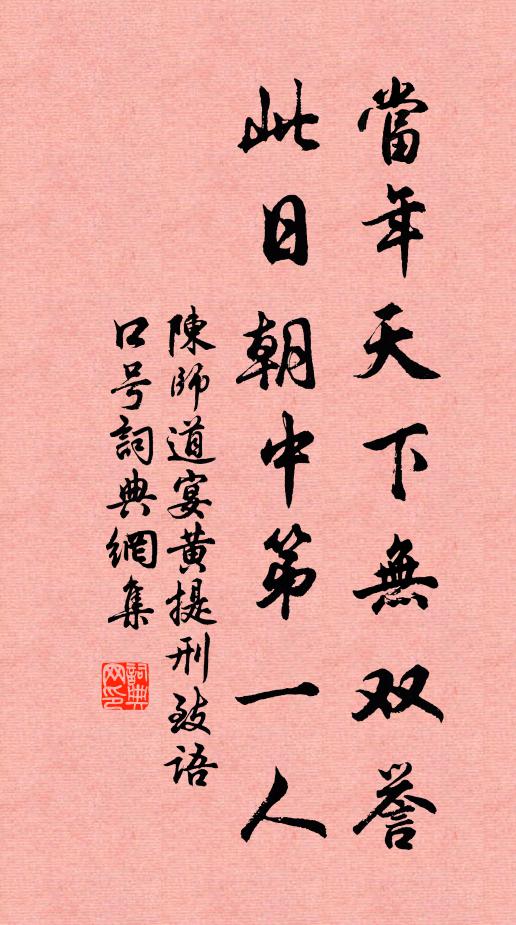 當年天下無双誉
此日朝中第一人
陳師道宴黄提刑致语
口号詞典網集
詞典网印